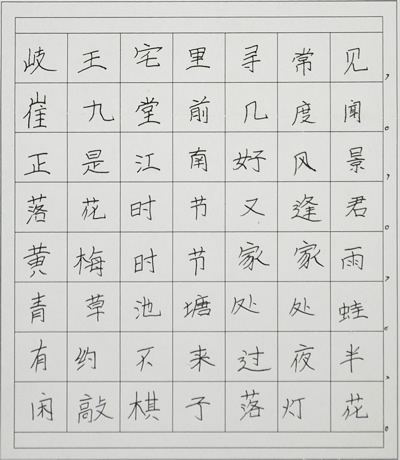 歧王宅里寻常见
崔九堂前几度闻
正是江南好风景
落花时节又逢君
黄梅时节家家雨
青草池塘处处蛙
有约不来过夜半
闲敲棋子落灯花